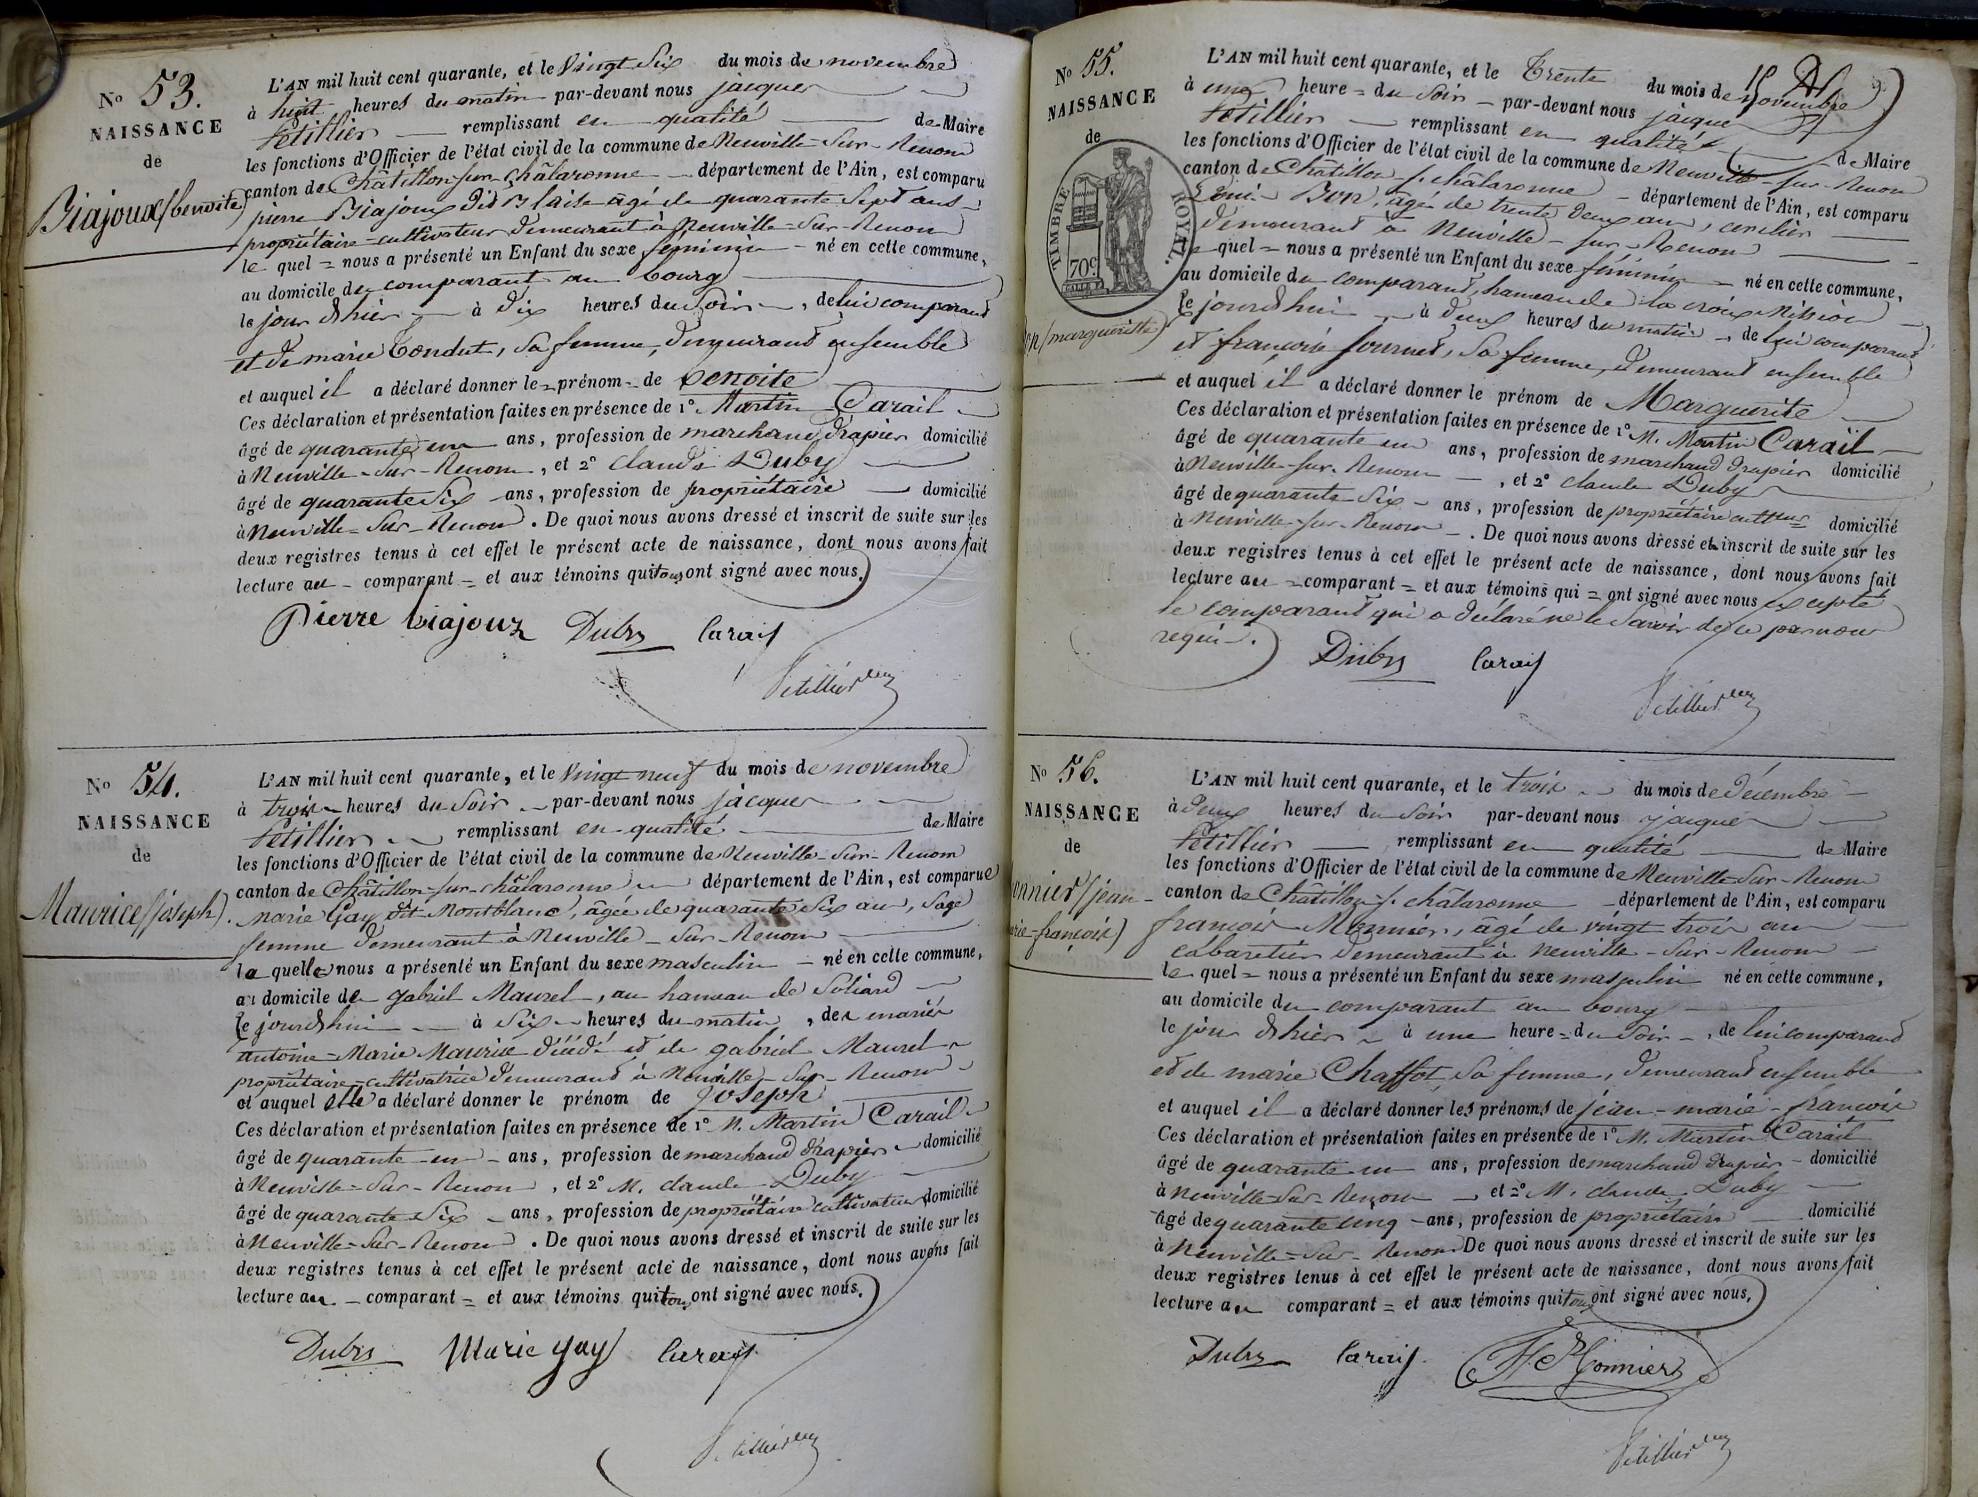 No 53.
NAISSANCE
de
Biajoux (benoite)
L'AN mil huit cent quarante, et le Vingt Six du mois de novembre
à huit heures du matin par-devant nous jacques
Pétillier remplissant en qualité de Maire
les fonctions d'Officier de l'état civil de la commune de Neuville-Sur-Renom
canton de Châtillon-sur-châlaronne département de l'Ain, est comparu
pierre Biajoux dit Blaise âgé de quarante Sept ans
propriétaire-cultivateur demeurant à Neuville-Sur-Renom
le quel = nous a présenté un Enfant du sexe féminin né en cette commune,
au domicile du comparant au bourg
le jour d'hier à dix heures du Soir, de lui comparant
et de marie Tondut, Sa femme, demeurant ensemble
et auquel il a déclaré donner le prénom de benoite
Ces déclaration et présentation faites en présence de 1° Martin Carail
âgé de quarante un ans, profession de marchand drapier domicilié
à Neuville-Sur-Renom, et 2° claude Duby
âgé de quarante Six ans, profession de propriétaire domicilié
à Neuville-Sur-Renom. De quoi nous avons dressé et inscrit de suite sur les
deux registres tenus à cet effet le présent acte de naissance, dont nous avons fait
lecture au comparant = et aux témoins qui tous ont signé avec nous.
Pierre biajoux Duby Carail
Petillier
No 54.
NAISSANCE
de
Maurice (joseph).
L'AN mil huit cent quarante, et le Vingt neuf du mois de novembre
à trois heures du Soir par-devant nous jacques
Pétillier remplissant en qualité de Maire
les fonctions d'Officier de l'état civil de la commune de Neuville-Sur-Renom
canton de Châtillon-sur-châlaronne département de l'Ain, est comparue
marie Gay dit Montblanc, âgée de quarante Six ans, Sage
femme demeurant à Neuville-Sur-Renom
la quelle nous a présenté un Enfant du sexe masculin né en cette commune,
au domicile de gabriel Maurel, au hameau de Soliard
le jourd'hui à Six heures du matin, des mariés
antoine-Marie Maurice décédé et de gabriel Maurel
propriétaire-cultivatrice demeurant à Neuville-Sur-Renom
et auquel elle a déclaré donner le prénom de joseph
Ces déclaration et présentation faites en présence de 1° M. Martin Carail
âgé de quarante un ans, profession de marchand drapier domicilié
à Neuville-Sur-Renom, et 2° M. claude Duby
âgé de quarante Six ans, profession de propriétaire cultivateur domicilié
à Neuville-Sur-Renom. De quoi nous avons dressé et inscrit de suite sur les
deux registres tenus à cet effet le présent acte de naissance, dont nous avons fait
lecture au comparant = et aux témoins qui tous ont signé avec nous.
Duby Marie gay Carail
Petillier
No 55.
NAISSANCE
de
TIMBRE ROYAL.
70c
(marguerite)
L'AN mil huit cent quarante, et le Trente du mois de novembre
à une heure = du Soir par-devant nous jacques
Pétillier remplissant en qualité de Maire
les fonctions d'Officier de l'état civil de la commune de Neuville-sur-Renom
canton de Châtillon-s.-châlaronne département de l'Ain, est comparu
Louis Bon, âgé de trente deux ans, cerclier
demeurant à Neuville-sur-Renom
le quel = nous a présenté un Enfant du sexe féminin né en cette commune,
au domicile du comparant, hameau de la croix Mission
le jourd'hui à deux heures du matin, de lui comparant
et françoise fournet, Sa femme, demeurant ensemble
et auquel il a déclaré donner le prénom de Marguerite
Ces déclaration et présentation faites en présence de 1° M. Martin Carail
âgé de quarante un ans, profession de marchand drapier domicilié
à Neuville-sur-Renom, et 2° claude Duby
âgé de quarante Six ans, profession de propriétaire cultteur domicilié
à Neuville-sur-Renom. De quoi nous avons dressé et inscrit de suite sur les
deux registres tenus à cet effet le présent acte de naissance, dont nous avons fait
lecture au = comparant = et aux témoins qui = ont signé avec nous excepté
le comparant qui a déclaré ne le Savoir de ce par nous
requis.
Duby Carail
Petillier
No 56.
NAISSANCE
de
onnier (jean-
rie-françois)
L'AN mil huit cent quarante, et le trois du mois de décembre
à deux heures du Soir par-devant nous jacques
Pétillier remplissant en qualité de Maire
les fonctions d'Officier de l'état civil de la commune de Neuville-Sur-Renom
canton de Châtillon-s.-châlaronne département de l'Ain, est comparu
françois Monnier, âgé de vingt trois ans
cabaretier demeurant à Neuville-Sur-Renom
le quel = nous a présenté un Enfant du sexe masculin né en cette commune,
au domicile du comparant au bourg
le jour d'hier à une heure = du Soir, de lui comparant
et de marie Chaffot, Sa femme, demeurant ensemble
et auquel il a déclaré donner les prénoms de jean-marie-françois
Ces déclaration et présentation faites en présence de 1° M. Martin Carail
âgé de quarante un ans, profession de marchand drapier domicilié
à Neuville-Sur-Renom et 2° M. claude Duby
âgé de quarante cinq ans, profession de propriétaire domicilié
à Neuville-Sur-Renom De quoi nous avons dressé et inscrit de suite sur les
deux registres tenus à cet effet le présent acte de naissance, dont nous avons fait
lecture au comparant = et aux témoins qui tous ont signé avec nous.
Duby Carail F Monnier
Petillier